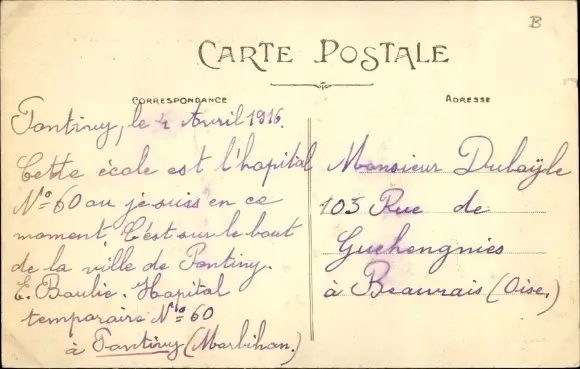 B
CARTE POSTALE
CORRESPONDANCE
ADRESSE
Pontivy, le 4 Avril 1916.
Cette école est l'hopital
No 60 ou je suis en ce
moment. C'est sur le bout
de la ville de Pontivy.
E. Baulie. Hopital
temporaire No 60
à Pontivy (Morbihan.)
Monsieur Dubayle
105 Rue de
Guehengnies
à Beauvais (Oise)